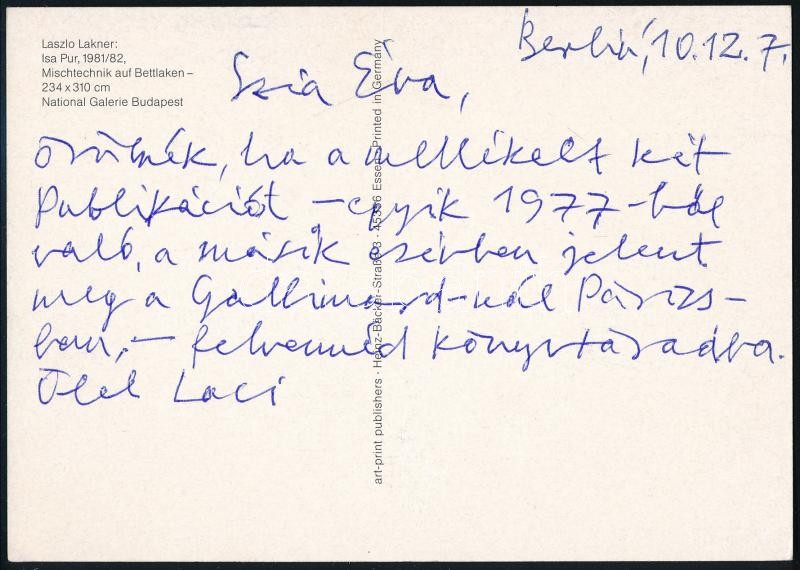 Laszlo Lakner:
Isa Pur, 1981/82,
Mischtechnik auf Bettlaken –
234 x 310 cm
National Galerie Budapest
Berlin, 10.12.7.
Szia Éva,
örülnék, ha a mellékelt két
Publikációt – egyik 1977-ből
való, a másik ezévben jelent
meg a Gallimard-nál Párizs-
ban, – felvennéd könyvtáradba.
Ölel Laci
art-print publishers · Heinz-Bäcker-Straße · Essen Printed in Germany